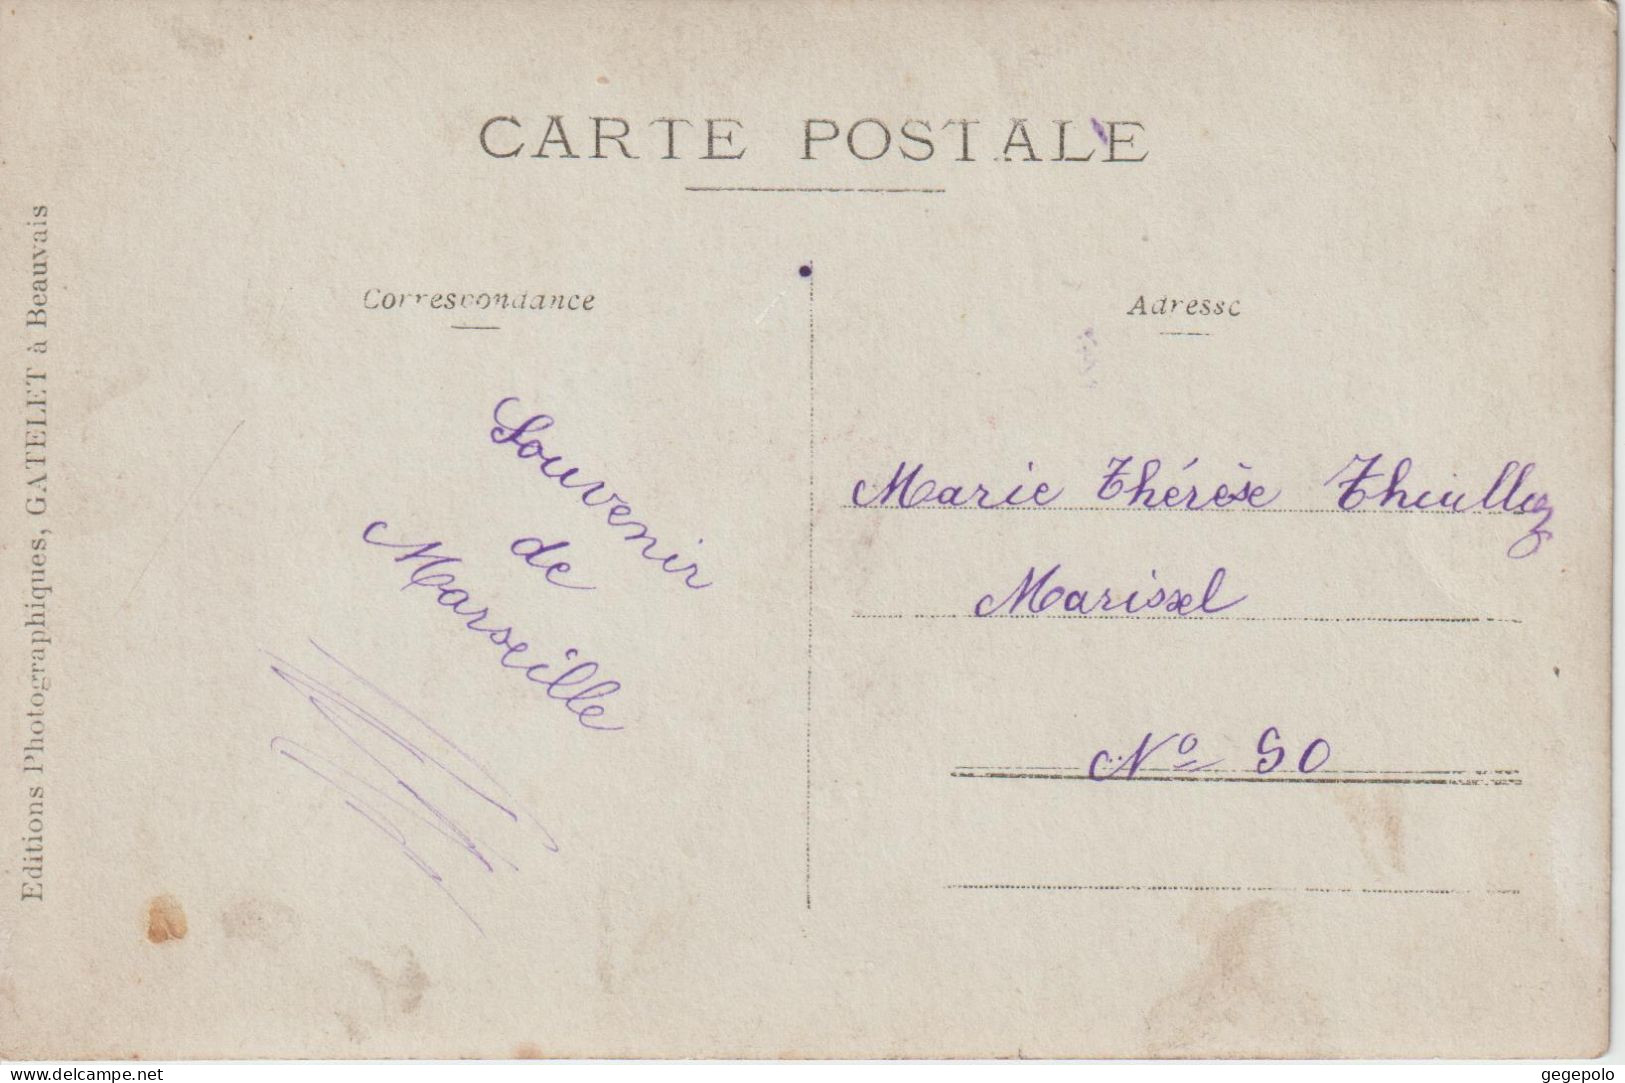 CARTE POSTALE
Correspondance
Adresse
Editions Photographiques, GATELET à Beauvais
Souvenir
de
Marseille
Marie Thérèse
Marissel
Nº 90
delcampe.net
gegepolo